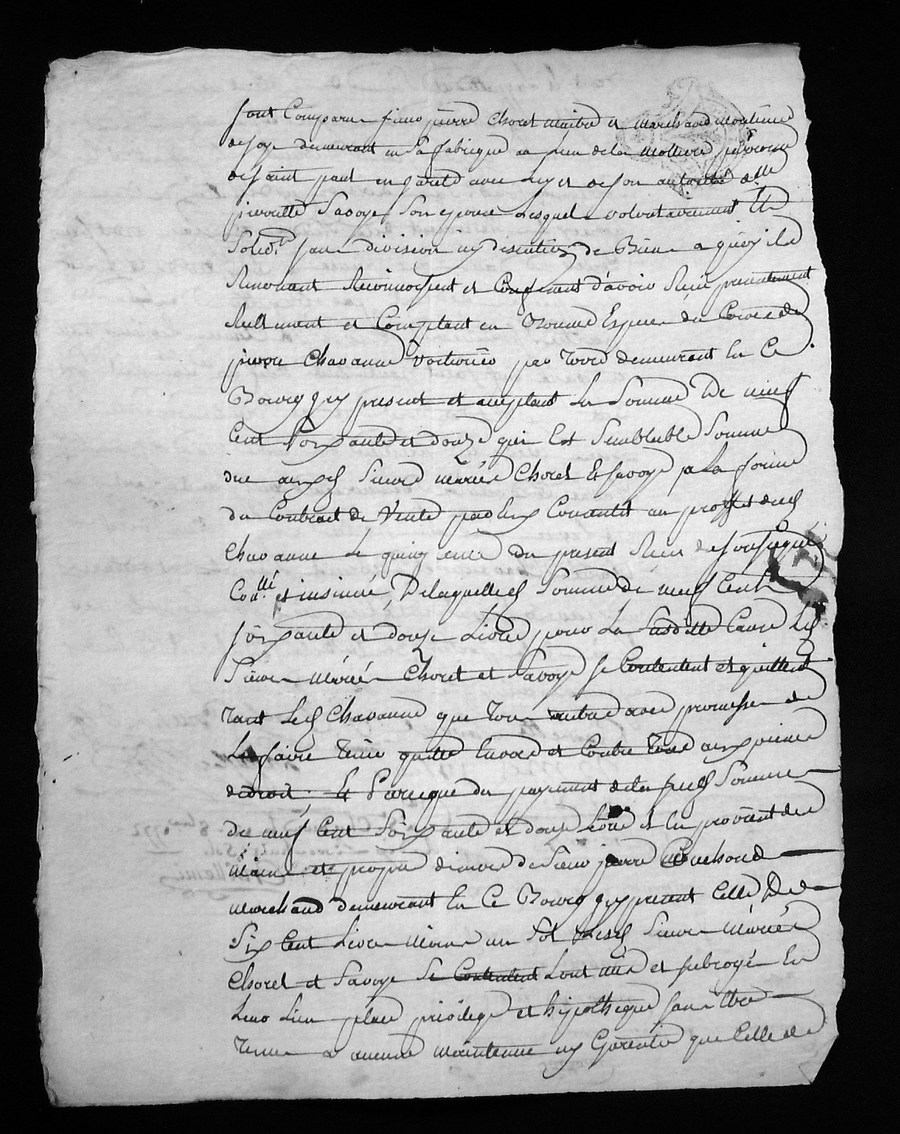 sont Comparu sieur pierre Choret maitre et marchand moulinier
de soye demeurant en sa fabrique au lieu de la paroisse
de saint paul en jarêt avec luy et de son autorité d.lle
pierrette Savoye son epouse Lesquels volontairement et
solid.t sans division ny discution de Biens a quoy ils
Renoncent Reconnoissent et Confessent d'avoir Reçu presentement
Reellement et Comptant en Bonnes Especes du Cours de
pierre Chavanne voiturier par terre demeurant En Ce
Bourg icy present et acceptant La Somme De neuf
Cent Soixante et douze qui Est Semblable Somme
due auxd. Sieurs mariés Choret et Savoye p La forme
du Contract de Vente par Eux Consentit au proffit dud.
Chavanne Le quinzieme du present Reçu de
Con.llé et insinué Delaquelle d. Somme de neuf Cent
Soixante et douze Livres pour La susditte Cause Lesd.
Sieurs Mariés Choret et Savoye se Contentent et quittent
tant Led. Chavanne que tous autres avec promesse de
Le faire tenir quitte Envers et Contre tous aux peines
de droit. Et parceque du payement de la susd. Somme
de neuf Cent Soixante et douze Livres Il En provient des
mains et propres deniers de Sieur pierre
marchand demeurant En Ce Bourg icy present Celle De
Six Cent Livres moins un Sol Lesd. Sieurs Mariés
Choret et Savoye se Contentent L'ont mis et subrogé En
Leur Lieu place privilege et hypotheque sans Etre
tenus a aucune maintenue ny Garentie que Celle de